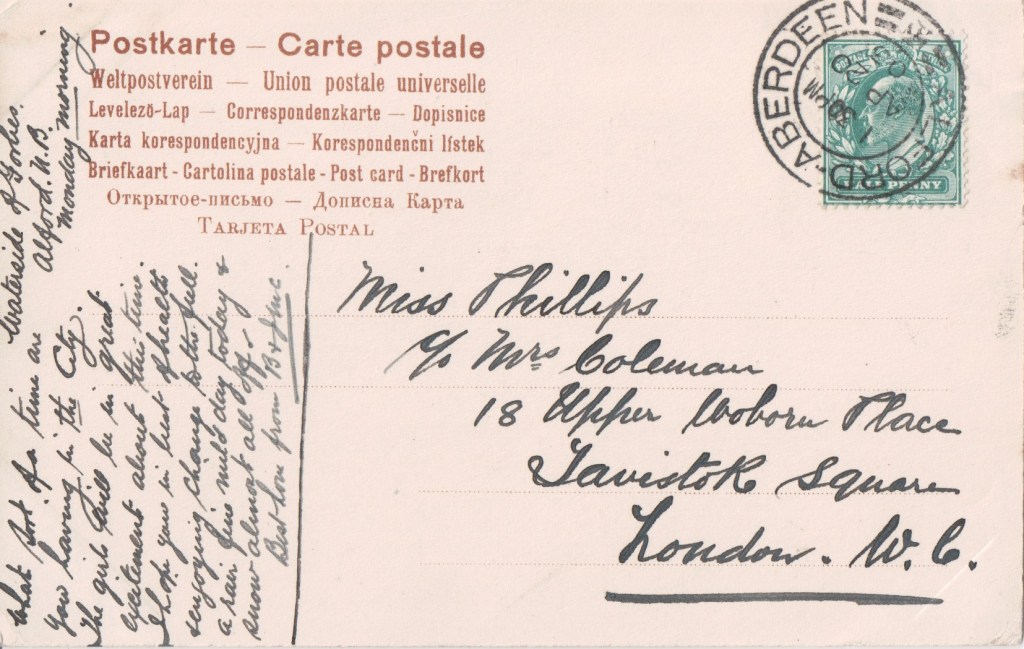 Postkarte – Carte postale
Weltpostverein — Union postale universelle
Levelező-Lap — Correspondenzkarte — Dopisnice
Karta korespondencyjna — Korespondenční lístek
Briefkaart - Cartolina postale - Post card - Brefkort
Открытое-письмо — Дописна Карта
Tarjeta Postal
ABERDEEN
PENNY
Waterside of Forbes
Alford. N.B.
Monday Morning
What sort of a time are
you having in the City.
The girls will be in great
excitement about this time.
I hope you're in best of health
& enjoying change to the full.
a rair fine mild day today &
snow almost all off
Best love from
Miss Phillips
c/o Mrs Coleman
18 Upper Woborn Place
Tavistok Square
London. W.C.